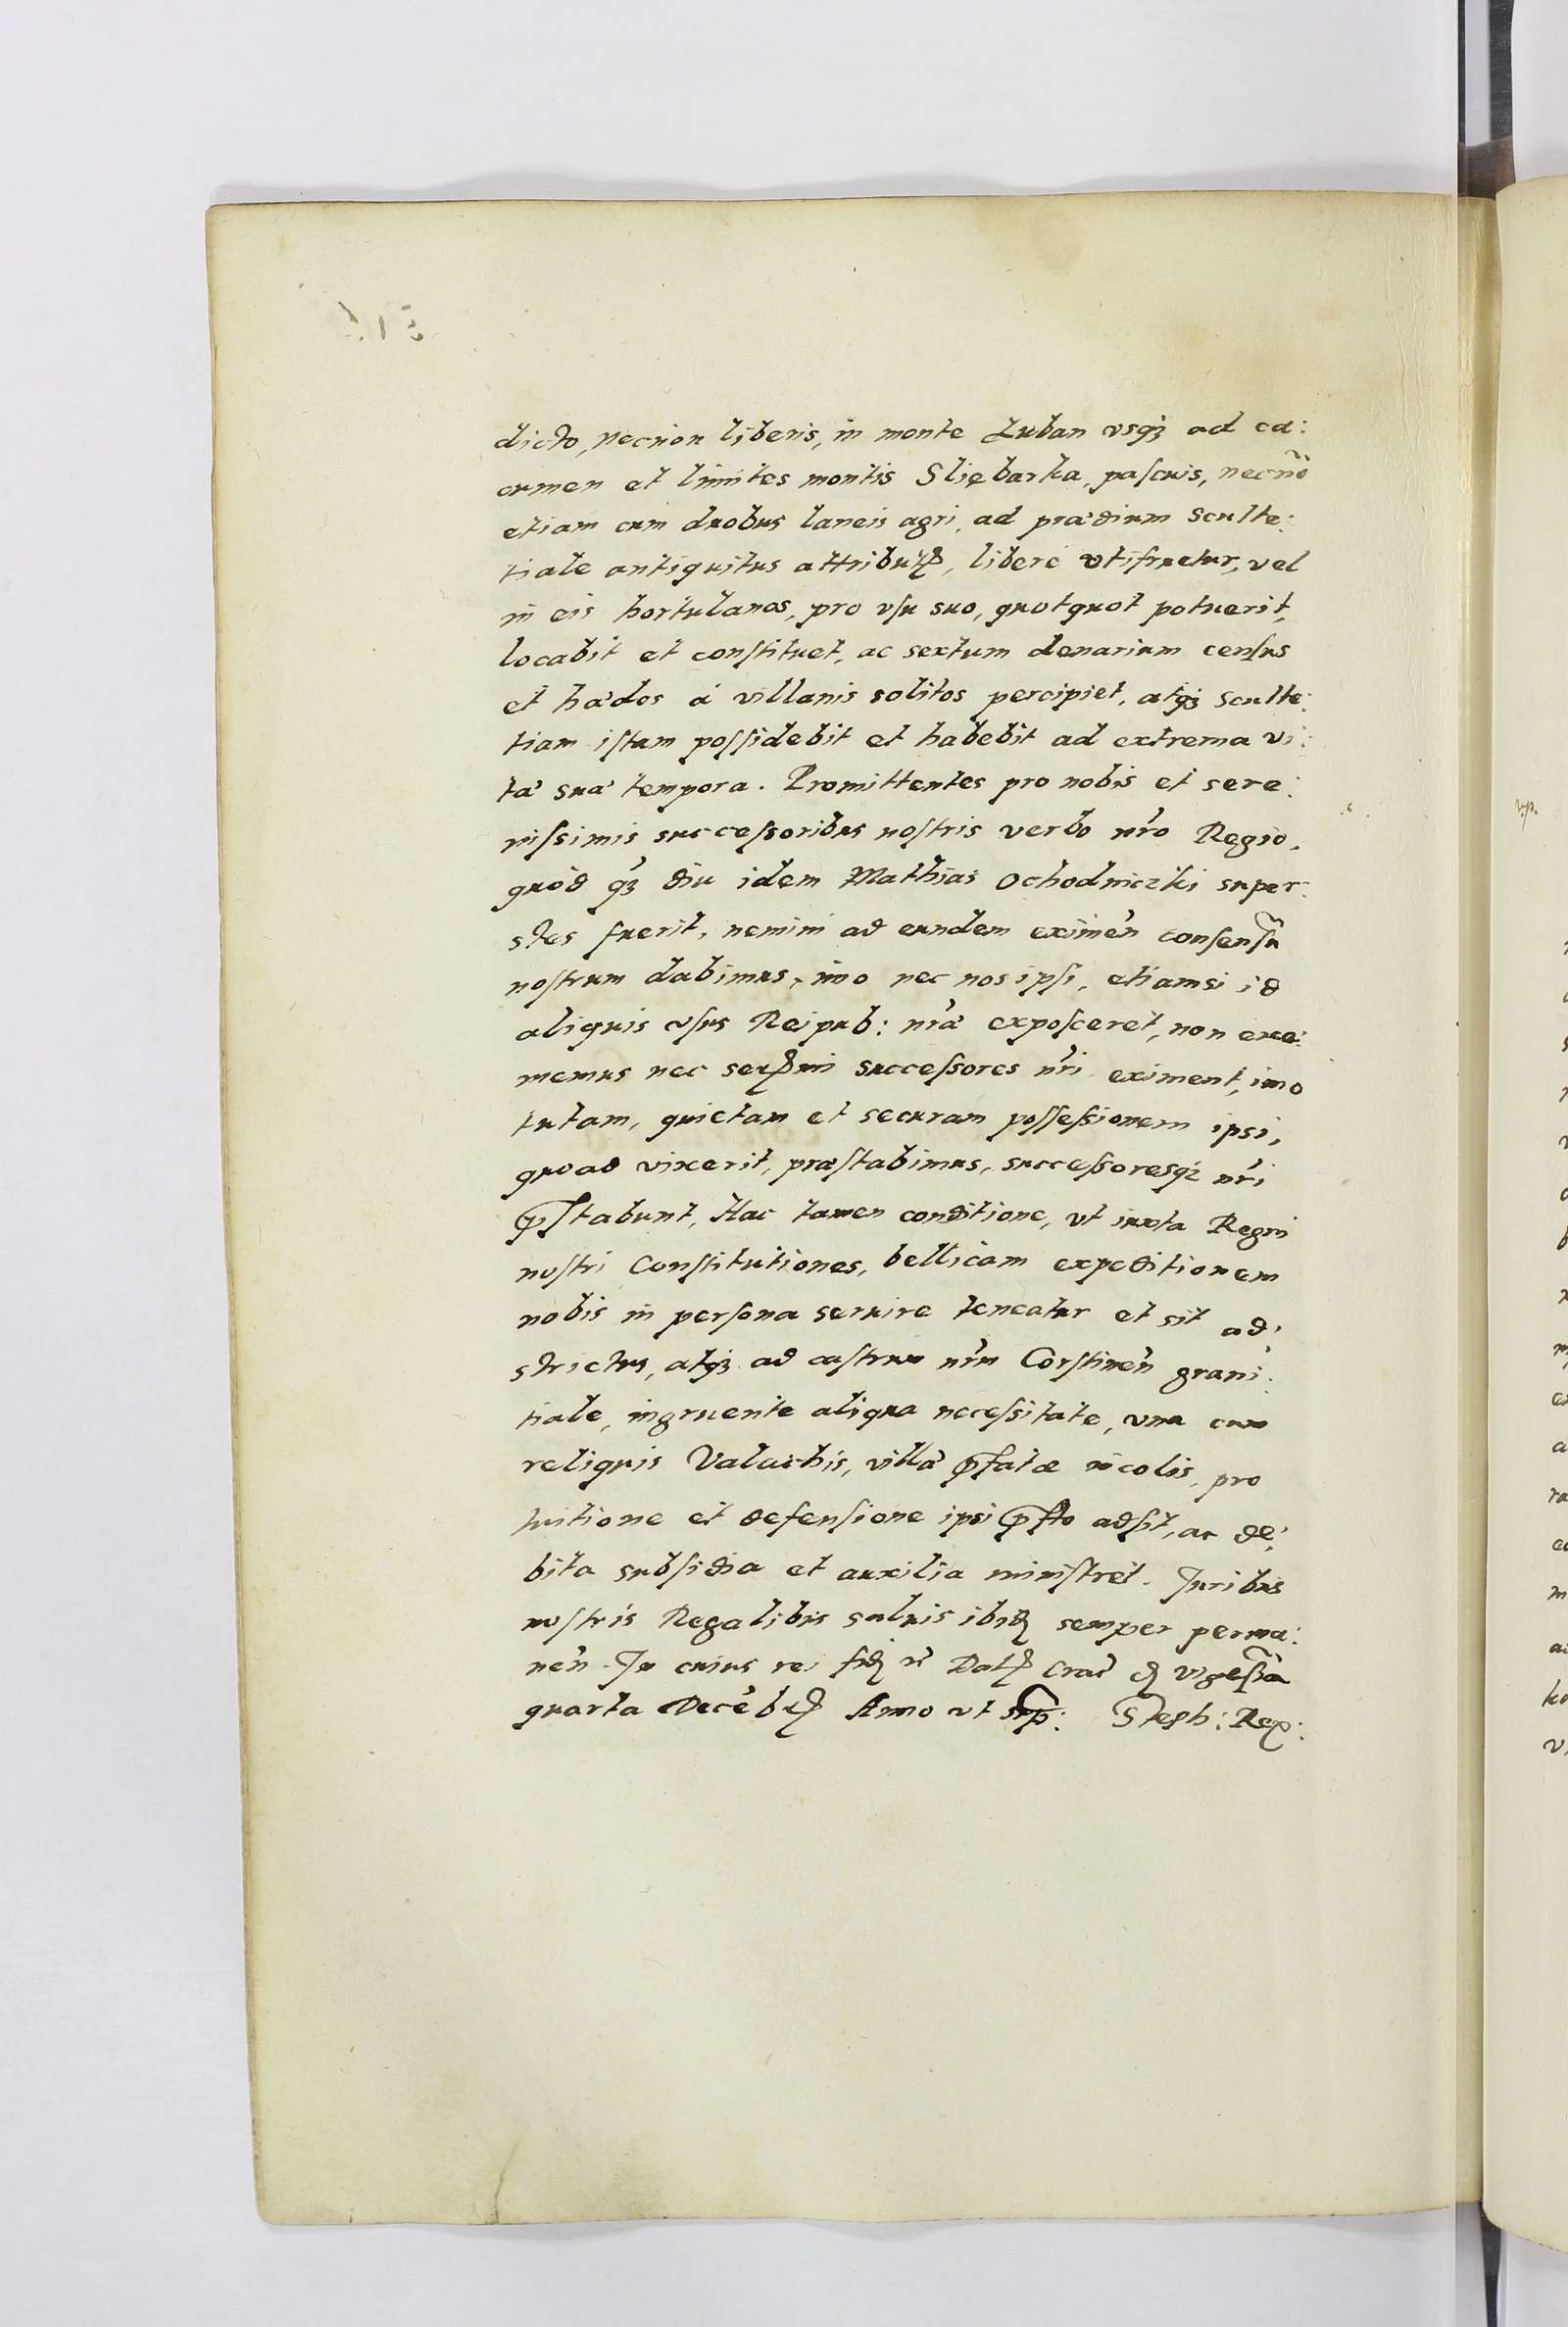 dicto, necnon liberis, in monte Luban vsqʒ ad ca:
cumen et limites montis Sliębarka, pascuis, necnō
etiam cum duobus laneis agri, ad prædium Sculte:
tiale antiquitus attributꝭ, liberé vtifruetur, vel
in eis hortulanos, pro vsu suo, quotquot potuerit,
locabit et constituet, ac sextum denarium census
et hædos á villanis solitos percipiet, atqʒ Sculte:
tiam istam possidebit et habebit ad extrema vi:
tæ suæ tempora. Promittentes pro nobis et sere:
nissimis successoribus nostris verbo nr̃o Regio,
quód qʒ diu idem Mathias Ochodniczki super:
stes fuerit, nemini ad eundem eximeñ consensũ
nostrum dabimus, imo nec nos ipsi, etiamsi id
aliquis vsus Reipub: nr̃æ exposceret, non exe:
memus nec serꝭmi successores nr̃i eximent, imo
tutam, quietam et securam possessionem ipsi,
quoad vixerit, præstabimus, successoresqʒ nr̃i
p̃stabunt, Hac tamen conditione, vt iuxta Regni
nostri Constitutiones, bellicam expeditionem
nobis in persona seruire teneatur et sit ad:
strictus, atqʒ ad castrum nr̃m Corstineñ grani:
tiale, ingruente aliqua necessitate, vna cum
reliquis Valachis, villæ p̃fatæ incolis, pro
tuitione et defensione ipsi p̃sto adsit, ac de:
bita subsidia et auxilia ministret. Juribus
nostris Regalibus saluis ibidꝭ semper perma:
neñ. In cuius rei fidꝭ rc̃ Datꝭ Crac̃ dꝭ vigesĩa
quarta Decẽbrꝭ Anno vt sup̃: Steph: Rex: